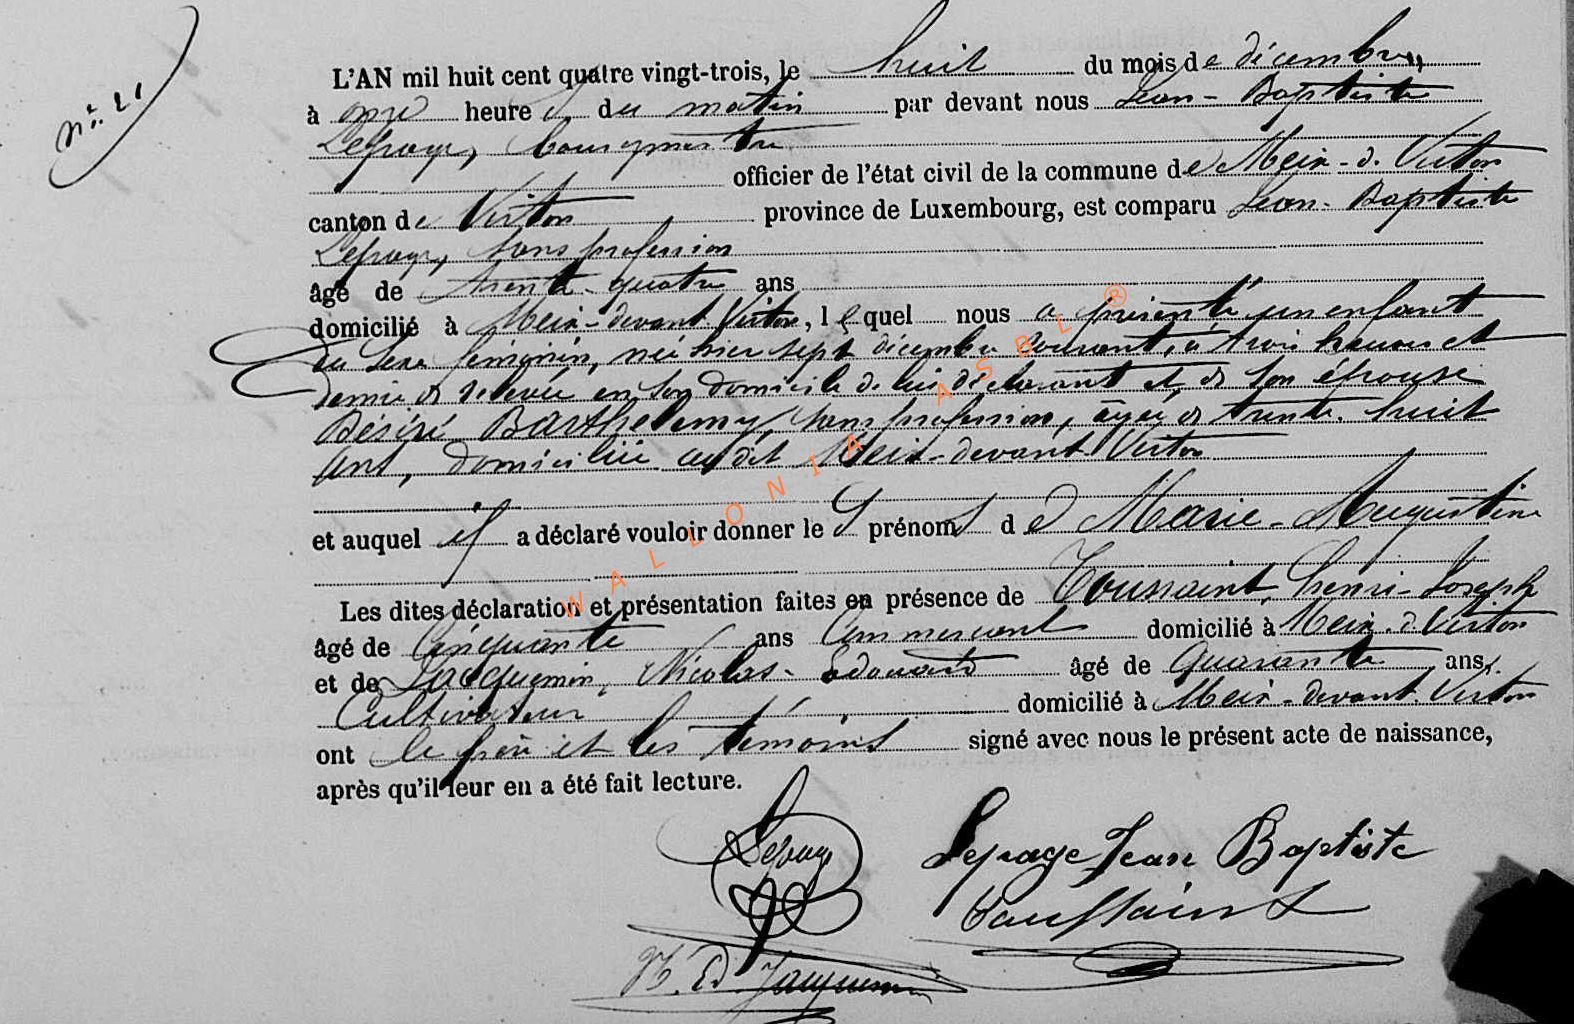 N°. 21
L'AN mil huit cent quatre vingt-trois, le huit du mois de décembre,
à onze heures du matin par devant nous Jean-Baptiste
Lepage, bourgmestre
officier de l'état civil de la commune de Meix-d. Virton
canton de Virton province de Luxembourg, est comparu Jean-Baptiste
Lepage, sans profession
âgé de trente-quatre ans
domicilié à Meix-devant Virton, lequel nous a présenté un enfant
du sexe féminin, née hier sept décembre courant, à trois heures et
demie de relevée en son domicile de lui déclarant et de son épouse
Désiré Barthelemy, sans profession, âgée de trente-huit
ans, domiciliée au dit Meix-devant Virton
et auquel il a déclaré vouloir donner les prénoms de Marie-Augustine
Les dites déclaration et présentation faites en présence de Toussaint, Henri-Joseph
âgé de cinquante ans Commercant domicilié à Meix-d Virton
et de Jacquemin, Nicolas-Edouard âgé de quarante ans,
Cultivateur domicilié à Meix-devant Virton
ont le père et les témoins signé avec nous le présent acte de naissance,
après qu'il leur en a été fait lecture.
Lepage Lepage Jean Baptiste
Toussaint
N. Ed. Jacquemin
WALLONIA ASBL ®